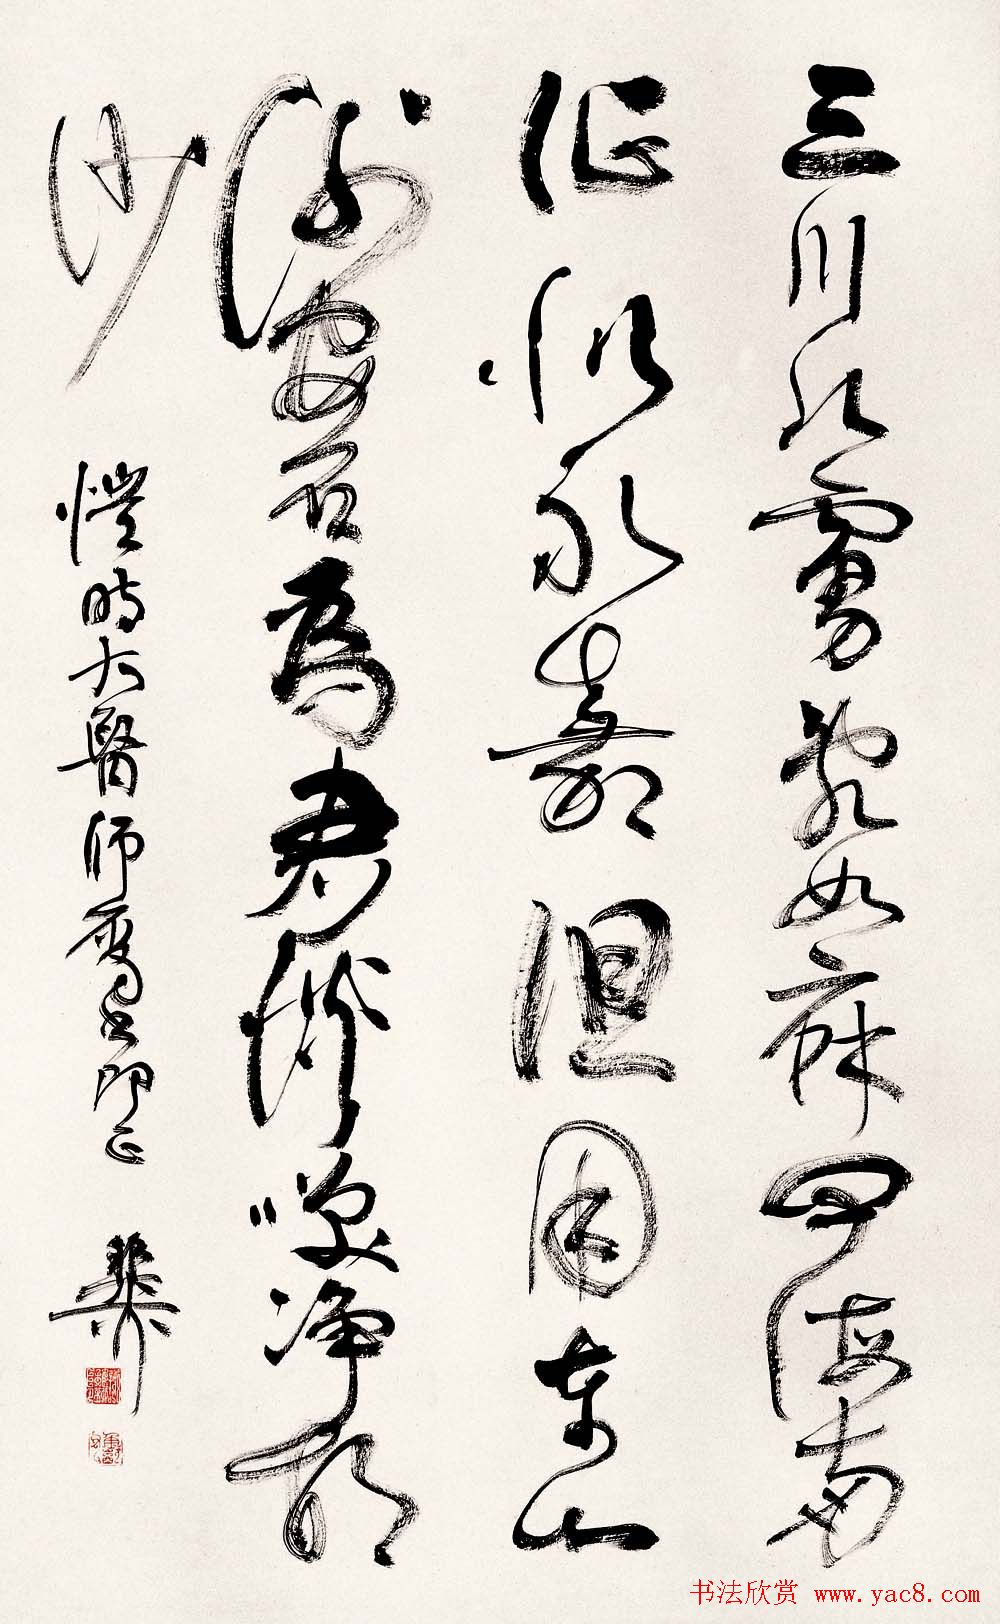 三川北虜亂如麻四海南
似永嘉但用東山
謝安石為君談笑净胡
沙
愷時大醫師 即正
书法欣赏 www.yac8.com